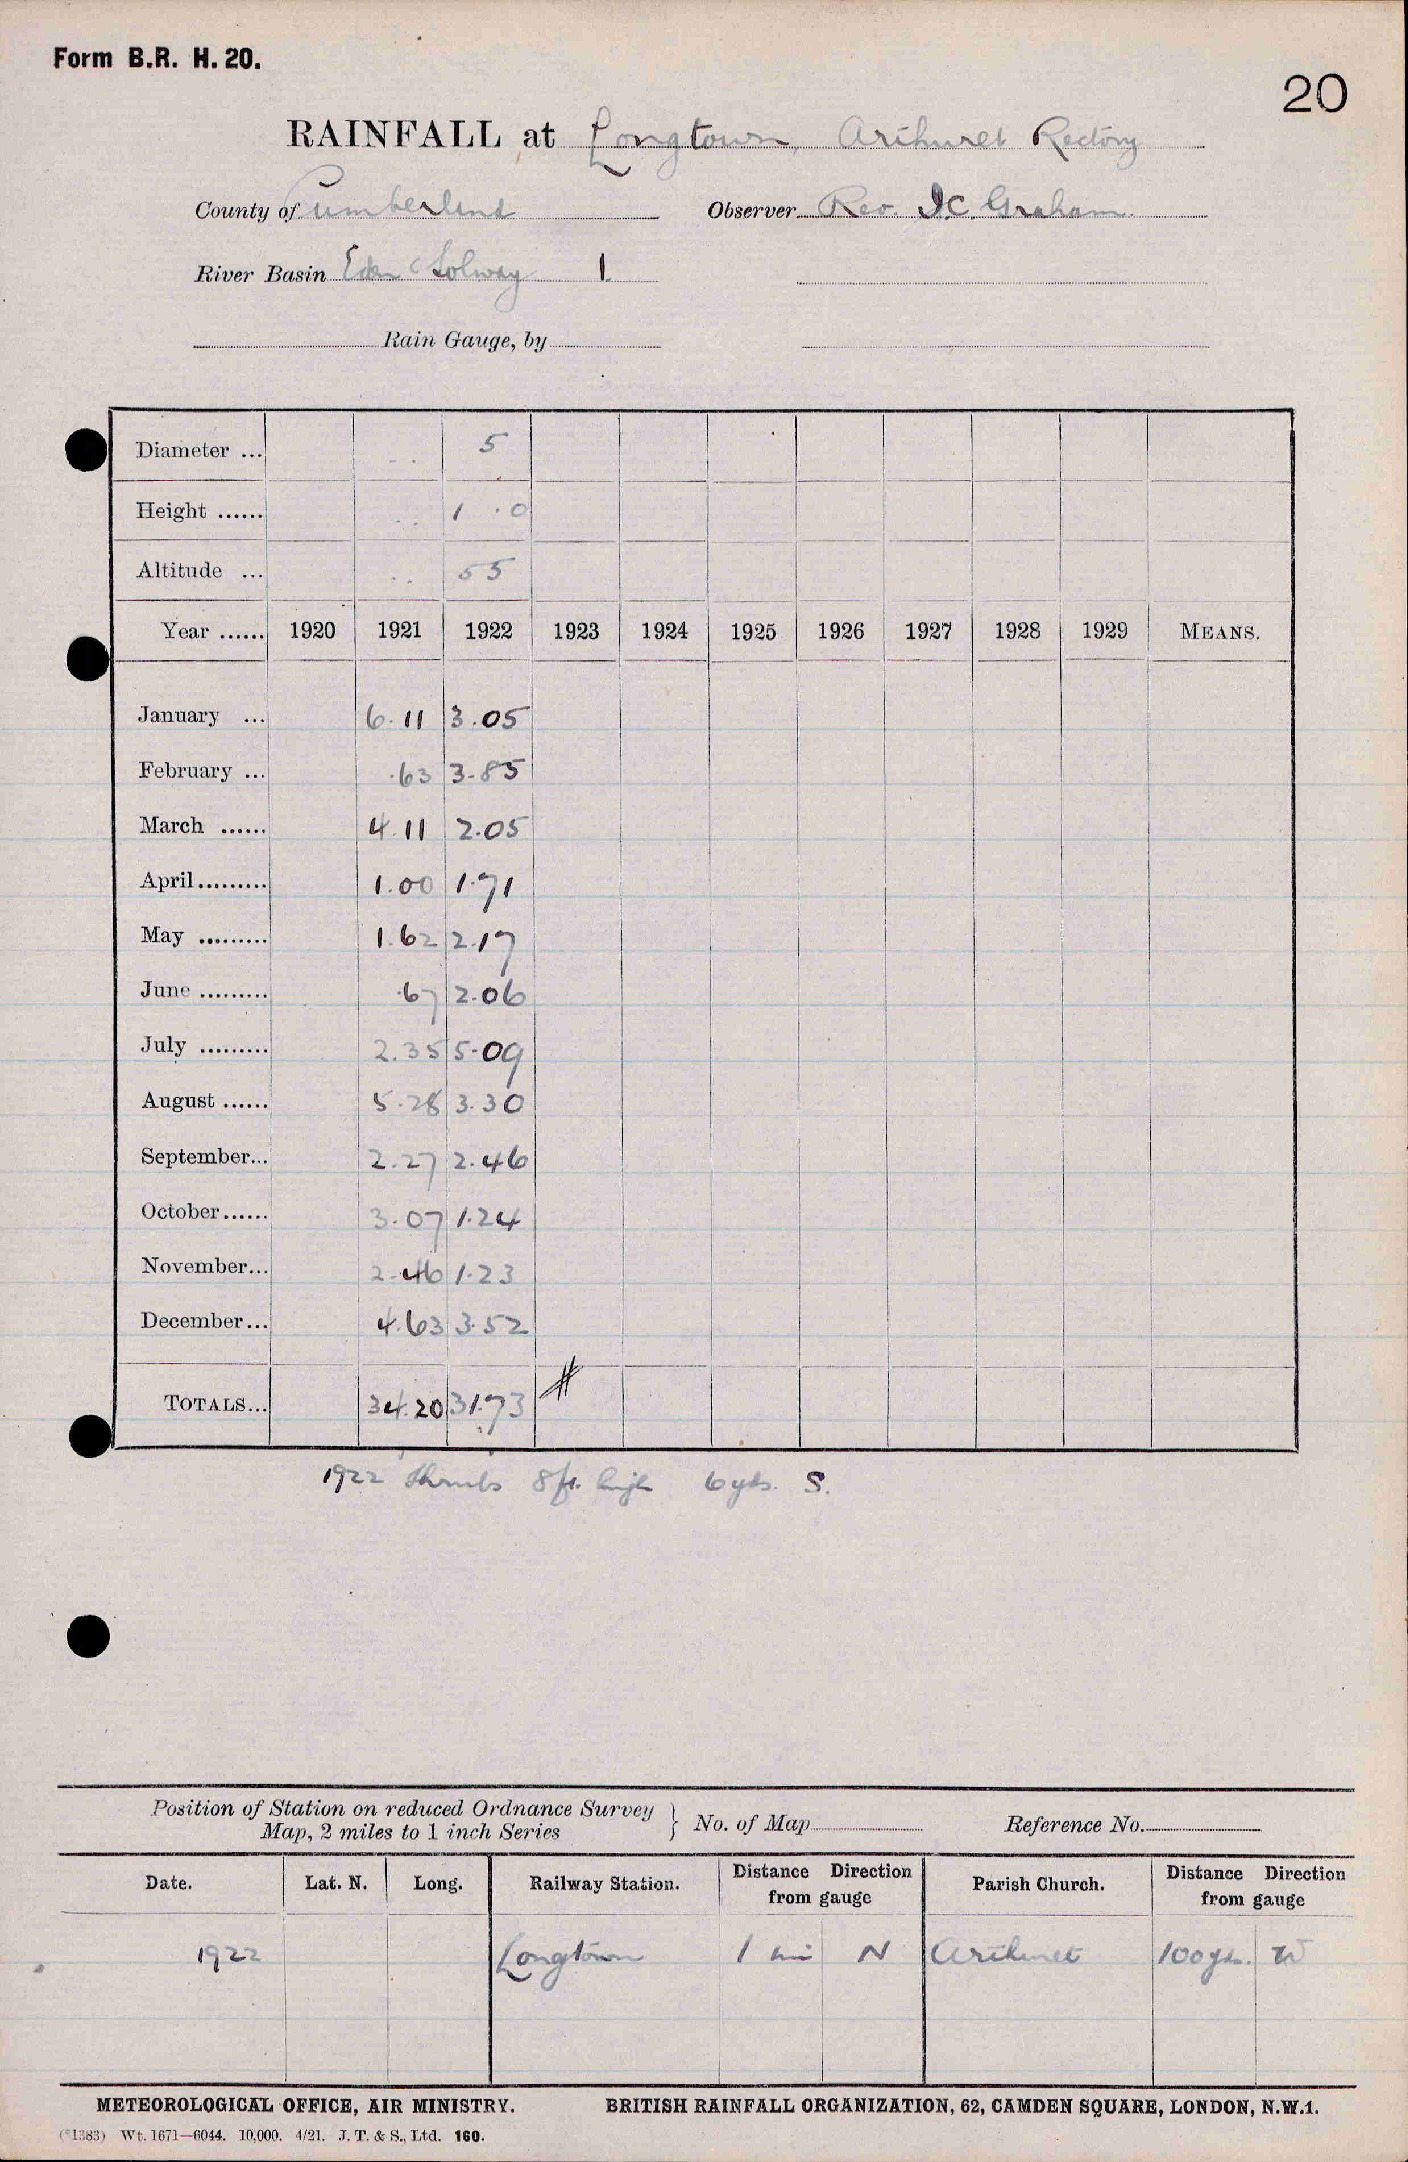 Form B.R. H. 20.
20
RAINFALL at Longtown, Arthuret Rectory
County of Cumberland Observer Rev. I C Graham
River Basin Eden & Solway 1
Rain Gauge, by
Diameter ... .. 5
Height ...... .. 1 . 0
Altitude ... .. 55
Year ...... 1920 1921 1922 1923 1924 1925 1926 1927 1928 1929 MEANS.
January ... 6.11 3.05
February ... .63 3.85
March ...... 4.11 2.05
April ......... 1.00 1.71
May ......... 1.62 2.17
June ......... .67 2.06
July ......... 2.35 5.09
August ...... 5.28 3.30
September... 2.27 2.46
October ...... 3.07 1.24
November... 2.46 1.23
December ... 4.63 3.52
TOTALS... 34.20 31.73 #
1922 Shrubs 8 ft. high 6 yds. S.
Position of Station on reduced Ordnance Survey Map, 2 miles to 1 inch Series } No. of Map Reference No.
Date. Lat. N. Long. Railway Station. Distance Direction from gauge Parish Church. Distance Direction from gauge
1922 Longtown 1 mi N Arthuret 100 yds. W
METEOROLOGICAL OFFICE, AIR MINISTRY. BRITISH RAINFALL ORGANIZATION, 62, CAMDEN SQUARE, LONDON, N.W.1.
(*1383) Wt. 1671—6044. 10,000. 4/21. J. T. & S., Ltd. 160.